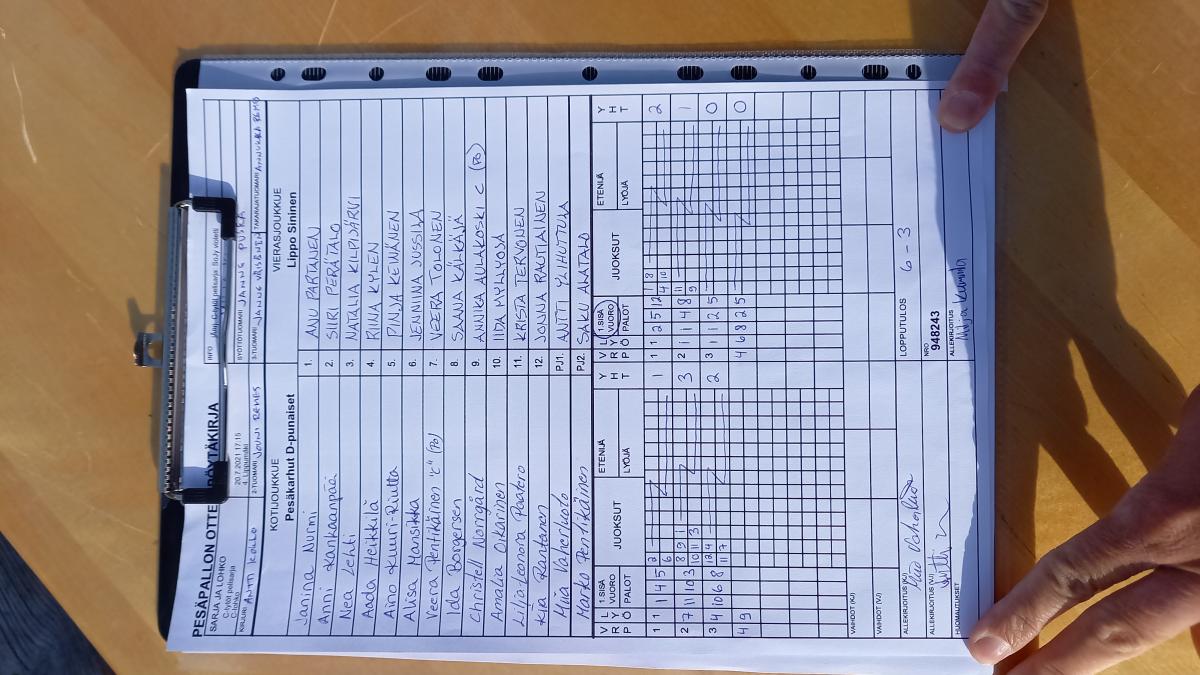 PESÄPALLON OTTE PÖYTÄKIRJA
SARJA JA LOHKO
C-tytöt pelisarja
C-lohko
20.7.2021 17.15
4. Lippumäki
INFO
KIRJURI ANTTI KOLLO
2-TUOMARI JOUNI REMES
SYÖTTÖTUOMARI JANNE PUSKA
3-TUOMARI JANNE VÄISÄNEN TAKARAJATUOMARI
KOTIJOUKKUE
Pesäkarhut D-punaiset
VIERASJOUKKUE
Lippo Sininen
Janina Nurmi 1. ANU PARTANEN
Anni Kankaanpää 2. SIIRI PERÄTALO
Nea Lehti 3. NATALIA KILPIJÄRVI
Aada Heikkilä 4. RIINA KYLEN
Aino Kuuri-Riutta 5. PINJA KEINÄNEN
Alisa Mansikka 6. JENNIINA JUSSILA
Veera Pentikäinen "C" (PO) 7. VEERA TOLONEN
Iida Borgersen 8. SAANA KÄLKÄJÄ
Christell Norrgård 9. ANNIKA AULAKOSKI C (PO)
Amalia Oikarinen 10. IIDA MYLLYOJA
Lilja-Leonora Paatero 11. KRISTA TERVONEN
Kira Rantanen 12. JONNA RAUTIAINEN
Miia Vaherluoto PJ1. ANTTI YLIHUTTULA
Marko Pentikäinen PJ2. SAKU AKATALO
V R P L Y Ö 1.SISÄ VUORO PALOT JUOKSUT ETENIJÄ LYÖJÄ Y H T V R P L Y Ö 1.SISÄ VUORO PALOT JUOKSUT ETENIJÄ LYÖJÄ Y H T
1 1 1 4 5 2 6 1 1 1 2 5 12 1 8 4 10 2
2 7 11 10 3 8 9 1 10 11 3 3 2 1 1 4 8 11 9 1
3 4 10 6 8 12 4 11 7 2 3 1 1 2 5 0
4 9 4 6 8 2 5 0
VAIHDOT (KJ)
VAIHDOT (VJ)
ALLEKIRJOITUS (KJ) Miia Vaherluoto
LOPPUTULOS 6 - 3
ALLEKIRJOITUS (VJ)
NRO
948243
ALLEKIRJOITUS
HUOMAUTUKSET